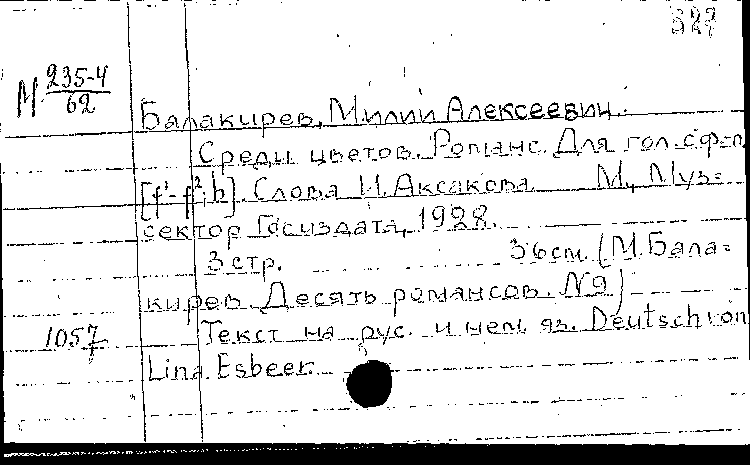 М 235-4
62
Балакирев, Милий Алексеевич.
Среди цветов. Романс. Для гол. с ф-п
[f¹-f²; b]. Слова И. Аксакова. М., Муз=
сектор Госиздата, 1928.
3 стр. 36 см. (М. Бала=
кирев. Десять романсов. N9)
1057 Текст на рус. и нем. яз. Deutsch von
Lina Esbeer.